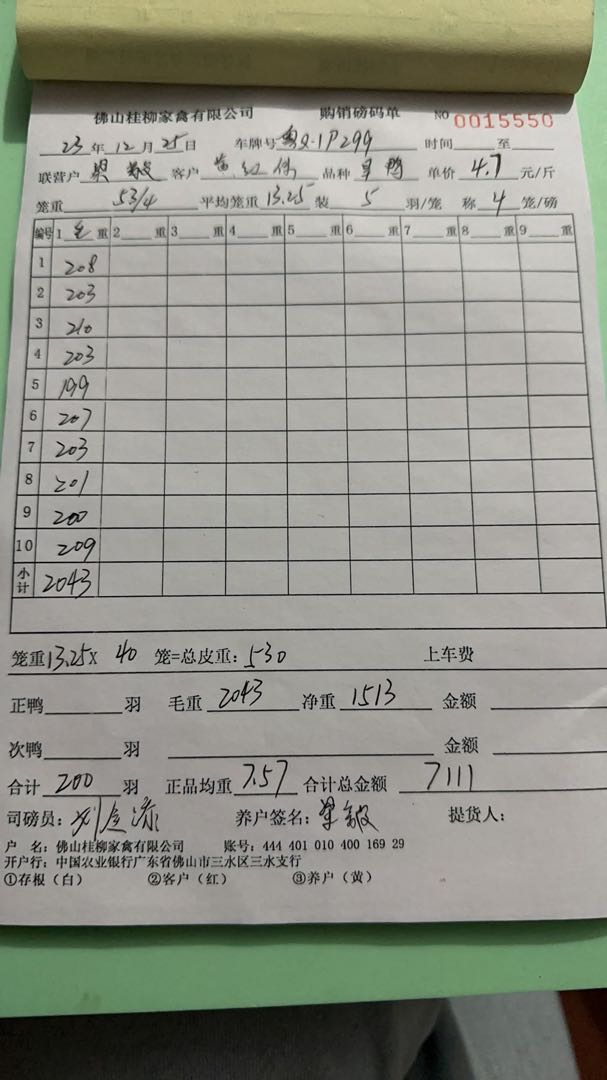 佛山桂柳家禽有限公司 购销磅码单 NO 0015550
23年12月25日 车牌号粤Q·1P299 时间 至
联营户 梁敏 客户 黄红伟 品种 旱鸭 单价 4.7 元/斤
笼重 53/4 平均笼重 13.25 装 5 羽/笼 称 4 笼/磅
编号 1 毛 重 2 重 3 重 4 重 5 重 6 重 7 重 8 重 9 重
1 208
2 203
3 210
4 203
5 199
6 207
7 203
8 201
9 200
10 209
小计 2043
笼重13.25X 40 笼=总皮重: 530 上车费
正鸭 羽 毛重 2043 净重 1513 金额
次鸭 羽 金额
合计 200 羽 正品均重 7.57 合计总金额 7111
司磅员: 养户签名: 梁敏 提货人:
户 名: 佛山桂柳家禽有限公司 账号: 444 401 010 400 169 29
开户行: 中国农业银行广东省佛山市三水区三水支行
①存根（白） ②客户（红） ③养户（黄）